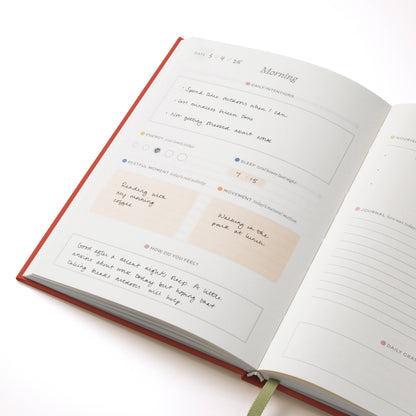 DATE 3 · 4 · 25
Morning
DAILY INTENTIONS
• Spend time outdoors when I can
• Less mindless screen time
• Not getting stressed about work
ENERGY
SLEEP
7 · 15
RESTFUL MOMENT
MOVEMENT
Reading with
my morning
coffee
Walking in the
park at lunch
HOW DO YOU FEEL?
Good after a decent night's sleep. A little
anxious about work today but hoping that
taking breaks outdoors will help
JOURNAL